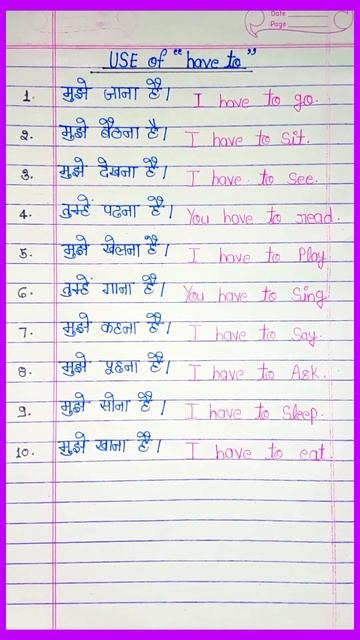 Date
Page
USE of "have to"
1. मुझे जाना है। I have to go.
2. मुझे बैठना है। I have to Sit.
3. मुझे देखना है। I have to See.
4. तुम्हें पढना है। You have to read.
5. मुझे खेलना है। I have to Play
6. तुम्हें गाना है। You have to Sing
7. मुझे कहना है। I have to Say.
8. मुझे पूछना है। I have to Ask.
9. मुझे सोना है। I have to Sleep.
10. मुझे खाना है। I have to eat.